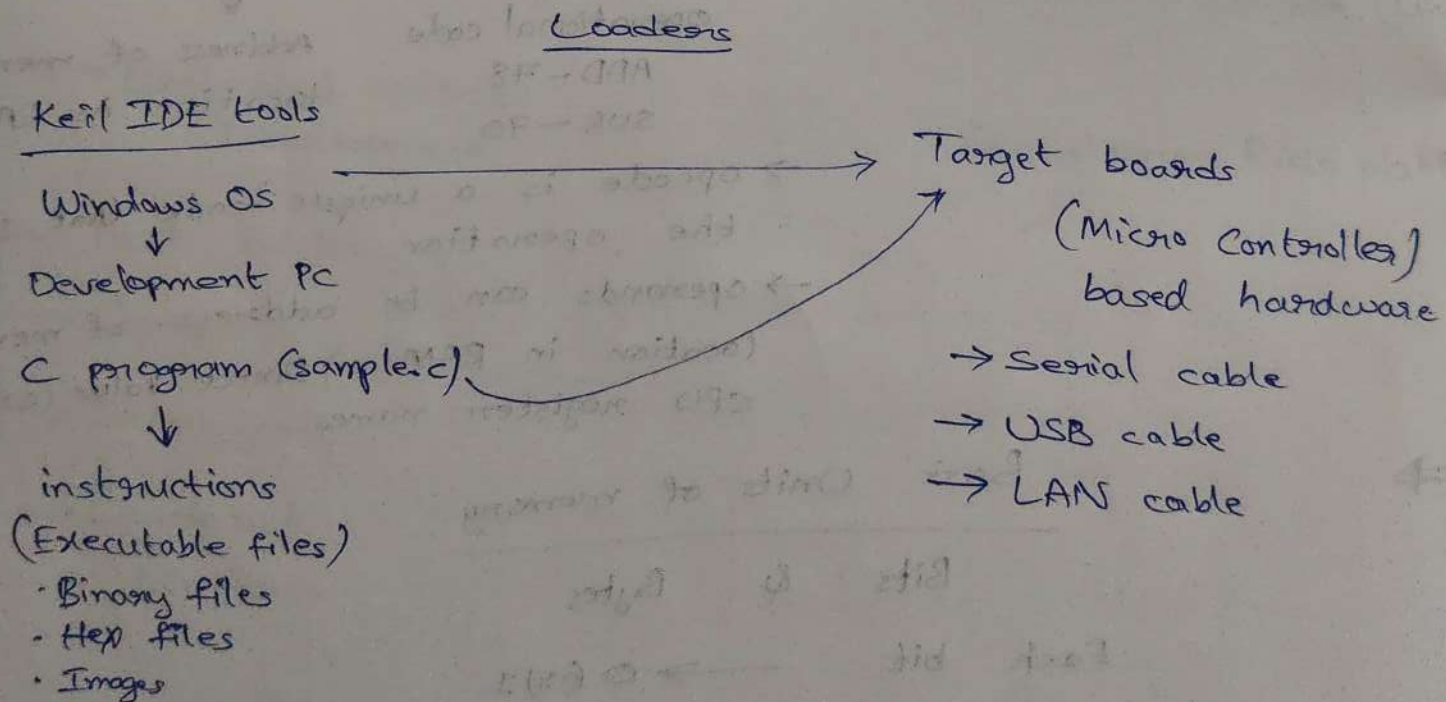 Loaders
Keil IDE tools
Windows OS
↓
Development PC
C program (sample.c)
↓
instructions
(Executable files)
· Binary files
· Hex files
· Images
→ Target boards
(Micro Controller)
based hardware
→ Serial cable
→ USB cable
→ LAN cable